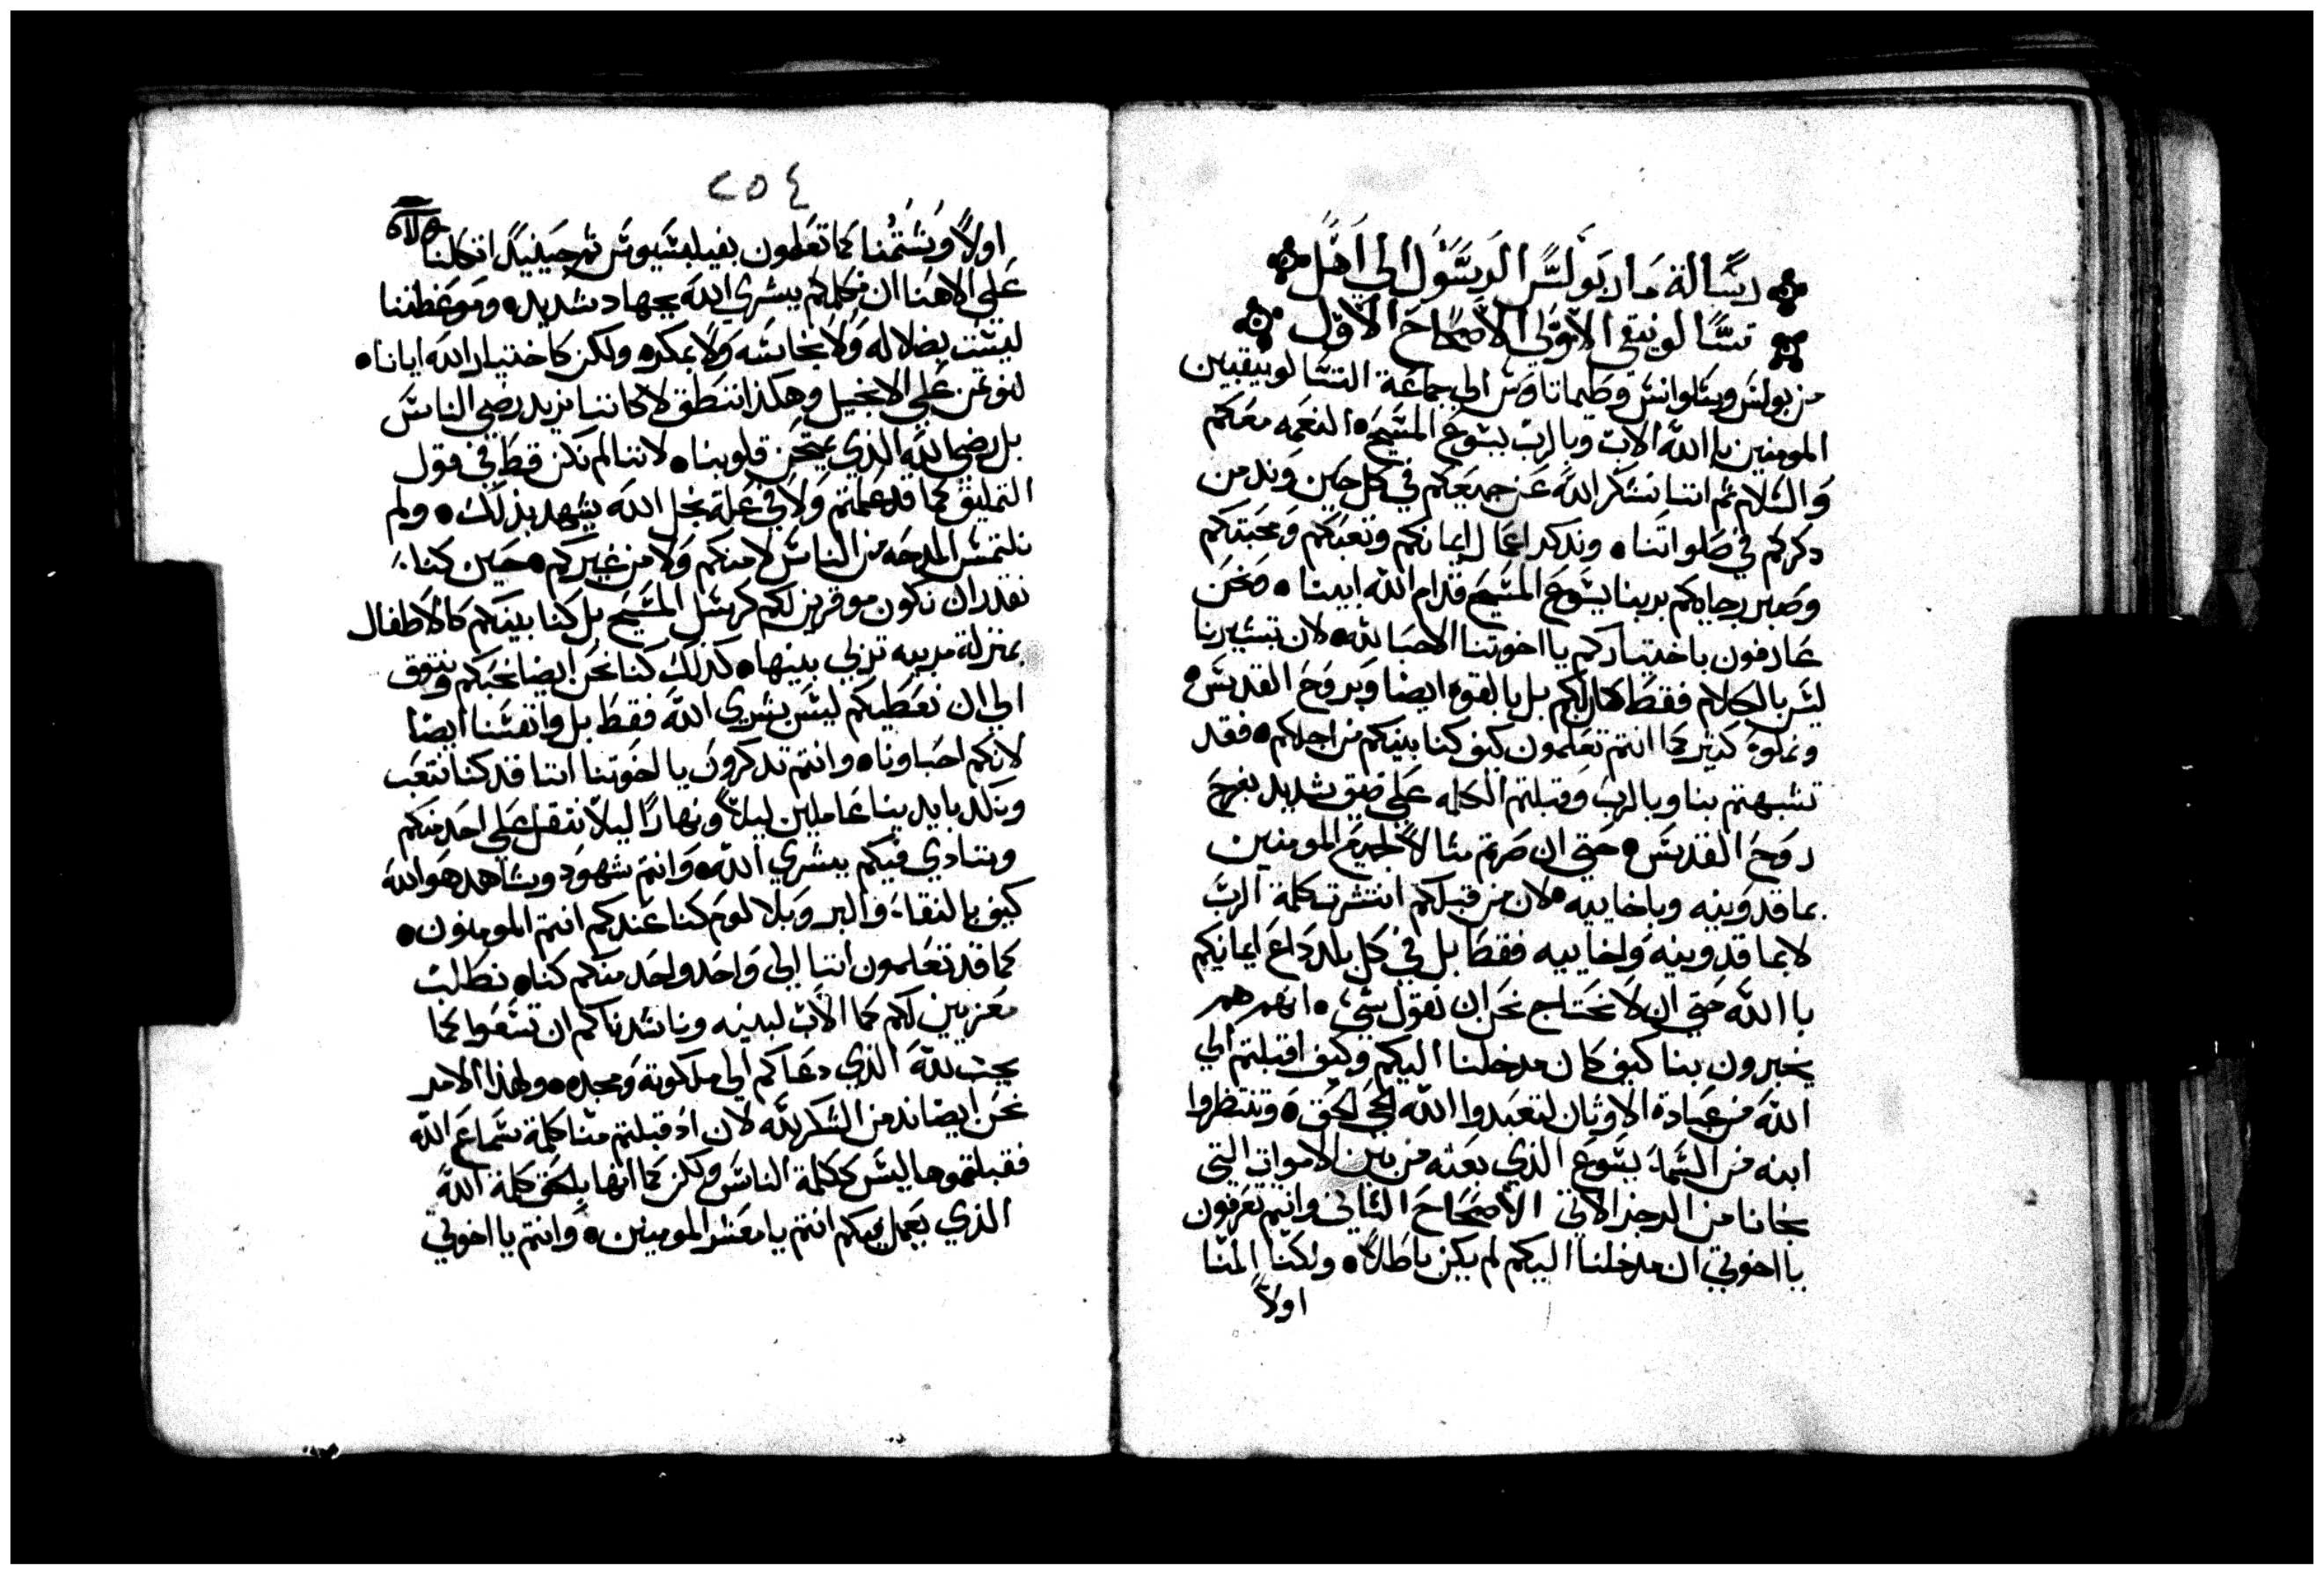 رسالة مار بولس الرسول الي اهل
تسالونيقي الاولي الاصحاح الاول
من بولس وسلوانس وطيماتاوس الي جماعة التسالونيقيين
المومنين باالله الاب وبالرب يسوع المسيح ٥ النعمه معكم
والسلام ثم اننا نشكر الله عن جميعكم في كل حين وندمن
دكركم في صلواتنا ٥ وندكر اعمال ايمانكم وتعبكم ومحبتكم
وصبر رجاكم بربنا يسوع المسيح قدام الله ابينا ٥ فنحن
عارفون باختياركم يااخوتنا الاحبا لله ٥ لان تبشيرنا
ليس بالكلام فقط كان لكم بل بالقوه ايضا وبروح القدس ٥
وبملوه كثير كما انتم تعلمون كيف كنا بينكم من اجلكم ٥ فقد
تشبهتم بنا وبالرب وقبلتم الكلمه علي ضيق شديد بفرح
روح القدس ٥ حتي ان صرتم مثالا لجميع المومنين
بماقدونيه وباخاييه ٥ لان من قبلكم انتشرت كلمة الرب
لا بماقدونيه واخاييه فقط بل في كل بلد داع ايمانكم
باالله حتي ان لا نحتاج نحن ان نقول شي ٥ انهم هم
يخبرون بنا كيف كان مدخلنا اليكم وكيف اقبلتم الي
الله من عبادة الاوثان لتعبدوا الله الحي الحق ٥ وتنتظروا
ابنه من السما يسوع الذي بعثه من بين الاموات التي
نجانا من الرجز الاتي الاصحاح الثاني وانتم تعرفون
يااخوتي ان مدخلنا اليكم لم يكن باطلا ٥ ولكنا المنا
اولا
٢٥٤
اولا وشتمنا كما تعلمون بفيلبسيوس ثم حينيد اتكلنا
علي الاهنا ان نكلمكم ببشري الله بجهاد شديد ٥ وموعظتنا
ليست بضلاله ولا بنجاسه ولا بمكره ولكن كاختيار الله ايانا ٥
لنوتمن علي الانجيل وهكذا ننطق لا كاننا نريد رضي الناس
بل رضي الله الذي يمتحن قلوبنا ٥ لاننا لم نكن قط في قول
التمليق كما قد علمتم ولا في علة بخل الله يشهد بذلك ٥ ولم
نلتمس المدحه من الناس لا منكم ولا من غيركم ٥ حين كنا
نقدر ان نكون موقرين لكم كرسل المسيح بل كنا بينكم كالاطفال
بمنزلة مربيه تربي بينها ٥ كذلك كنا نحن ايضا نحبكم ونتوق
الي ان نعطيكم ليس بشري الله فقط بل وانفسنا ايضا
لانكم احباونا ٥ وانتم تدكرون يااخوتنا اننا قد كنا نتعب
ونكد بايدينا عاملين ليلا ونهارا ليلا نثقل علي احد منكم
وننادي فيكم ببشري الله ٥ وانتم شهود وشاهد هو الله
كيف بالنقاء والبر وبلا لوم كنا عندكم انتم المومنون ٥
كما قد تعلمون اننا الي واحد واحد منكم كنا ٥ نطلب
معزيين لكم كما الاب لبنيه ونناشدناكم ان تسعوا كما
يجب لله الذي دعاكم الي ملكوته ومجده ٥ ولهذا الامر
نحن ايضا ندمن الشكر لله لان اد قبلتم منا كلمة سماع الله
فقبلتموها ليس ككلمة الناس ولكن كما انها بالحق كلمة الله
الذي يعمل بكم انتم يا معشر المومنين ٥ وانتم يااخوتي